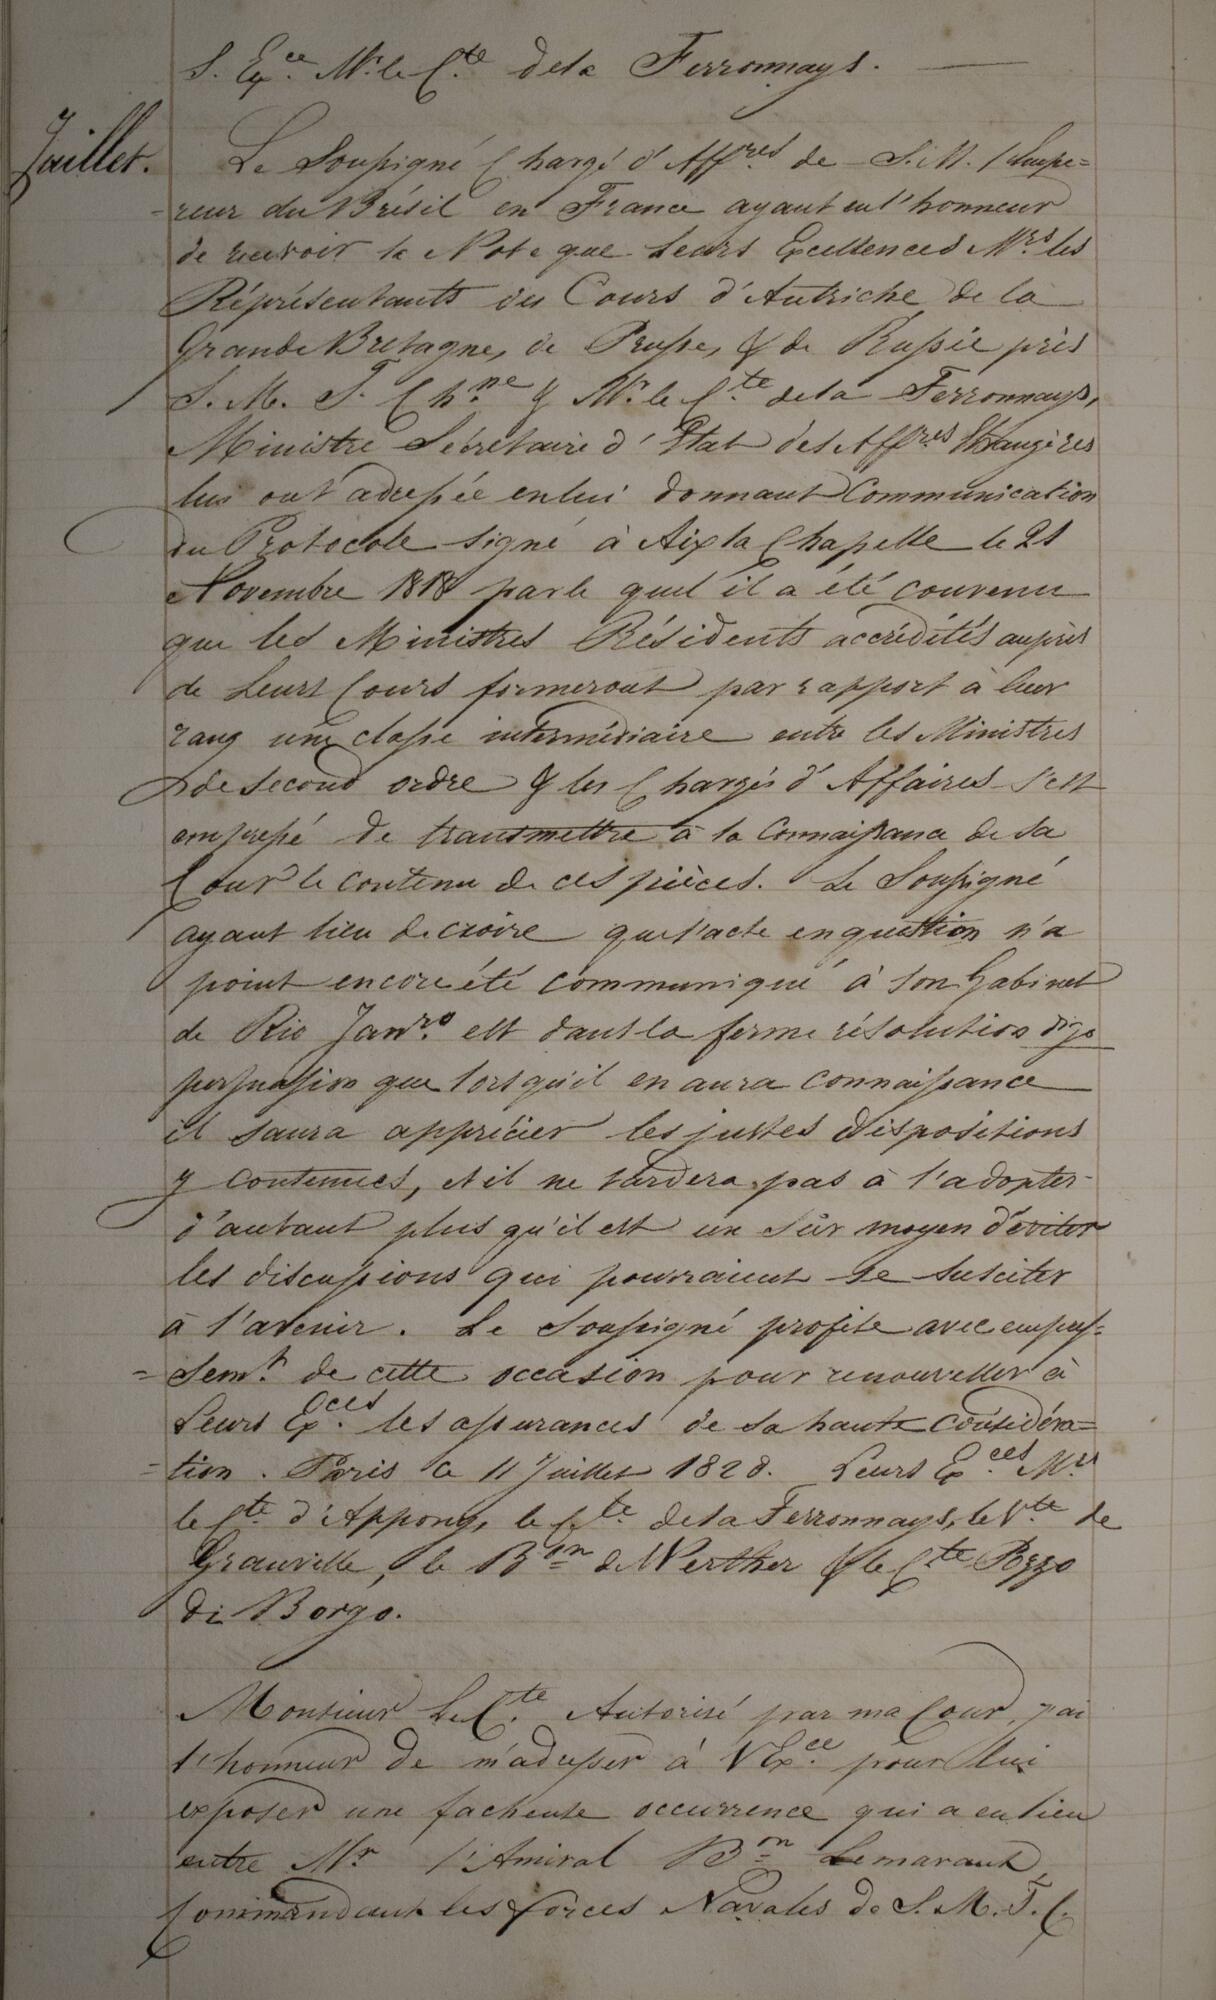 S. Exce. Mr. le Cte. de la Ferronnays.
Juillet.
Le Soussigné Chargé d'Affres. de S. M. l'Empe=
=reur du Brésil en France ayant eu l'honneur
de recevoir la Note que Leurs Excellences Mrs. les
Réprésentants des Cours d'Autriche de la
Grande Bretagne, de Prusse, & de Russie près
S. M. T. Chne. & Mr. le Cte. de la Ferronnays,
Ministre Sécrétaire d'Etat des Affres. Etrangères
lui ont adressée en lui donnant Communication
du Protocole signé à Aix la Chapelle le 21
Novembre 1818 par le quel il a été convenu
que les Ministres Résidents accrédités auprès
de Leurs Cours formeront par rapport à leur
rang une classe intermédiaire entre les Ministres
de second ordre & les Chargés d'Affaires s'est
empressé de transmettre à la Connaissance de sa
Cour le contenu de ces pièces. Le Soussigné
ayant lieu de croire que l'acte en question n'a
point encore été communiqué à son Gabinet
de Rio Janro. est dans la ferme résolution digo
persuasion que lorsqu'il en aura connaissance
il saura apprécier les justes dispositions
y contenues, et il ne tardera pas à l'adopter
d'autant plus qu'il est un sûr moyen d'éviter
les discussions qui pourraient se susciter
à l'avenir. Le Soussigné profite avec empres=
=semt. de cette occasion pour renouveller à
Leurs Exces. les assurances de sa haute considéra=
=tion. Paris le 11 Juillet 1828. Leurs Exces. Mrs
le Cte. d'Appony, le Cte. de la Ferronnays, le Vte. de
Granville, le Bon de Werther & le Cte. Pozzo
di Borgo.
Monsieur Le Cte. Autorisé par ma Cour, j'ai
l'honneur de m'adresser à V Exce. pour lui
exposer une facheuse occurrence qui a eu lieu
entre Mr. l'Amiral Bon Lemarant,
Commandant les forces Navales de S. M. T. C.